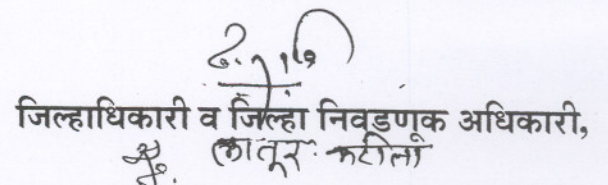 जिल्हाधिकारी व जिल्हा निवडणूक अधिकारी,
लातूर. करीता